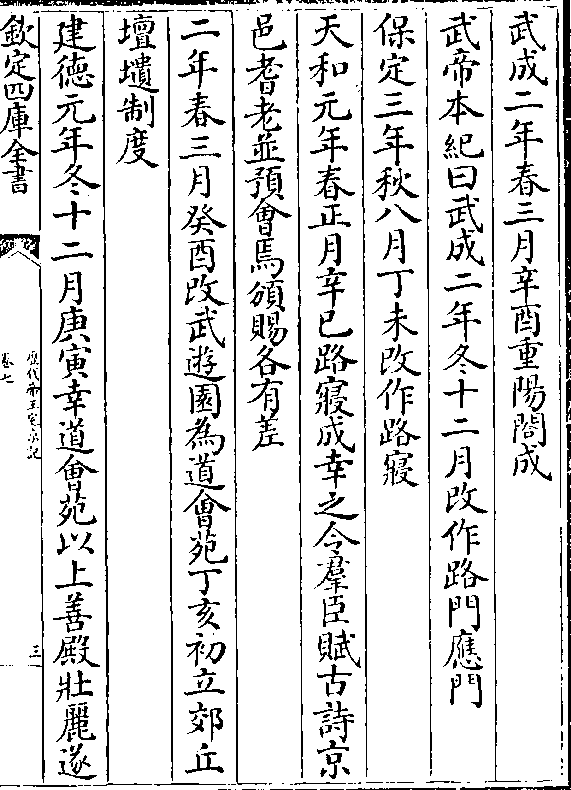 武成二年春三月辛酉重陽閣成
武帝本紀曰武成二年冬十二月改作路門應門
保定三年秋八月丁未改作路寢
天和元年春正月辛巳路寢成幸之令羣臣賦古詩京
邑耆老並預會焉頒賜各有差
二年春三月癸酉改武遊園為道會苑丁亥初立郊丘
壇壝制度
建德元年冬十二月庚寅幸道會苑以上善殿壯麗遂
欽定四庫全書
歷代帝王宅京記
卷七
三